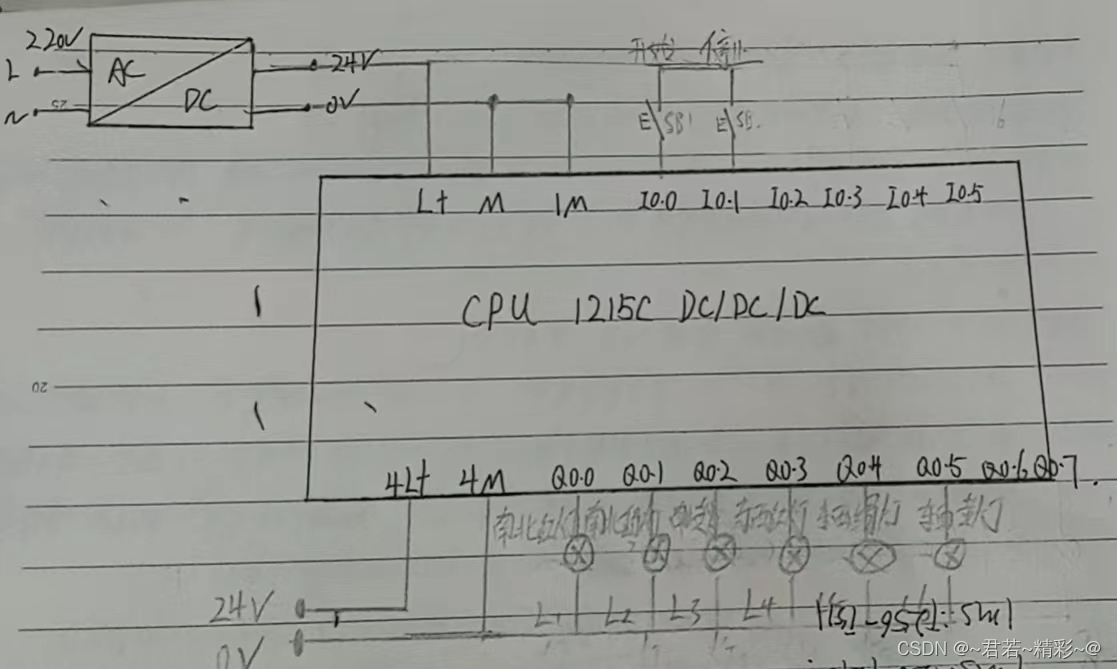 220V
L AC 24V 开始 停止
N DC 0V
25 E\SB1 E\SB
L+ M 1M I0.0 I0.1 I0.2 I0.3 I0.4 I0.5
CPU 1215C DC/DC/DC
20
4L+ 4M Q0.0 Q0.1 Q0.2 Q0.3 Q0.4 Q0.5 Q0.6 Q0.7
南北红灯 南北 东西红灯
24V L1 L2 L3 L4
0V
CSDN @~君若~精彩~@